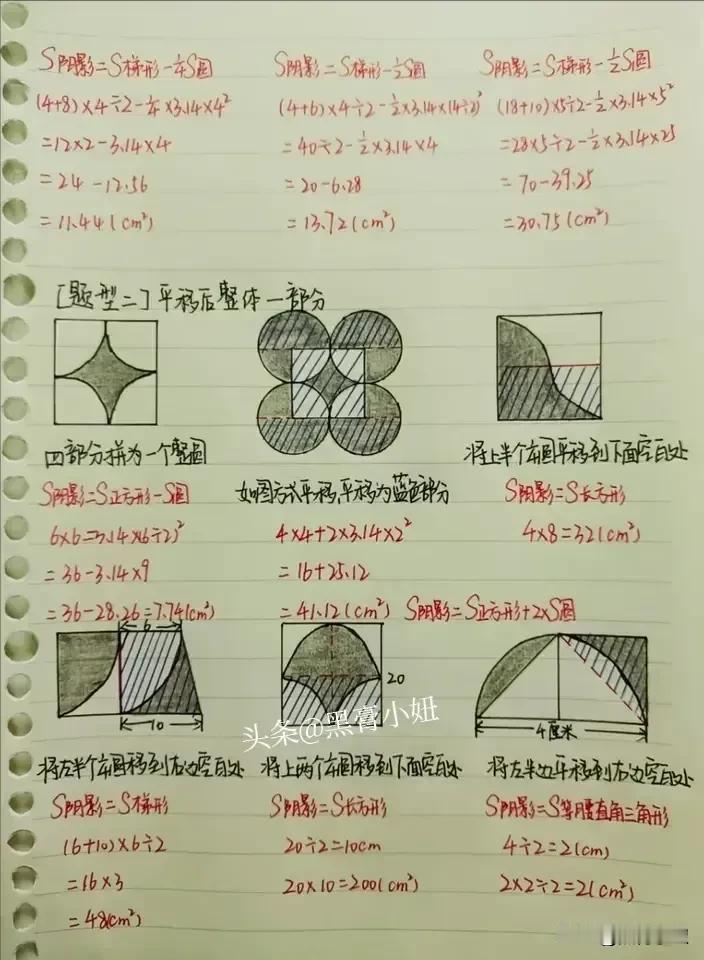 S阴影=S梯形-¼S圆
(4+8)×4÷2-¼×3.14×4²
=12×2-3.14×4
=24-12.56
=11.44(cm²)
S阴影=S梯形-½S圆
(4+6)×4÷2-½×3.14×(4÷2)²
=40÷2-½×3.14×4
=20-6.28
=13.72(cm²)
S阴影=S梯形-½S圆
(18+10)×5÷2-½×3.14×5²
=28×5÷2-½×3.14×25
=70-39.25
=30.75(cm²)
[题型二]平移后整体一部分
四部分拼为一个整圆
S阴影=S正方形-S圆
6×6=3.14×(6÷2)²
=36-3.14×9
=36-28.26=7.74(cm²)
如图方式平移,平移为蓝色部分
4×4+2×3.14×2²
=16+25.12
=41.12(cm²) S阴影=S正方形+2×S圆
将上半个图平移到下面空白处
S阴影=S长方形
4×8=32(cm²)
6
10
将左半个图移到右边空白处
S阴影=S梯形
(6+10)×6÷2
=16×3
=48(cm²)
20
将上两个图移到下面空白处
S阴影=S长方形
20÷2=10cm
20×10=200(cm²)
4厘米
将左半边平移到右边空白处
S阴影=S等腰直角三角形
4÷2=2(cm)
2×2÷2=2(cm²)
头条@黑膏小妞